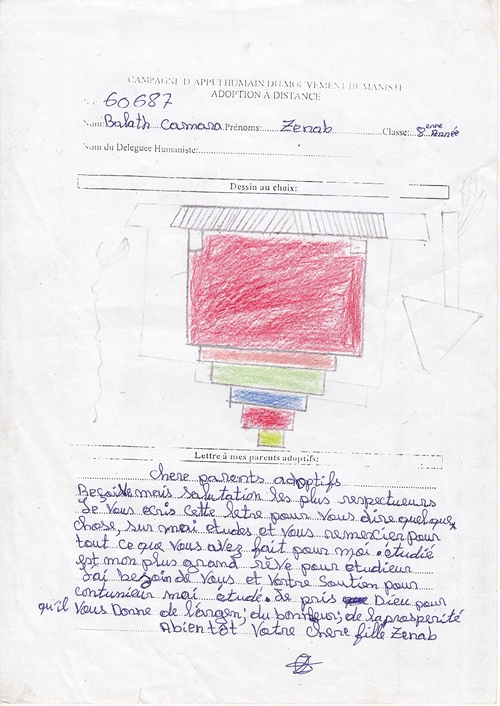 CAMPAGNE D'APPUI HUMAIN DU MOUVEMENT HUMANISTE
ADOPTION A DISTANCE
N°: 60687
Nom: Balath Camara Prénoms: Zenab Classe: 8eme Année
Nom du Deleguee Humaniste:
Dessin au choix:
Lettre á mes parents adoptifs:
chere parents adoptifs
Reçoive mais salutation les plus respectueurs
Je Vous ecris cette letre pour Vous dire quelque
chose, sur mai etudes et Vous remercier pour
tout ce que Vous avez fait pour moi. étudié
est mon plus grand rêve pour etudier
J'ai besoin de Vous et Vortre Soutien pour
contunieur mai étude. Je pris Dieu pour
qu'il Vous Donne de l'argen; du bonheur; de la prosperité
Abientôt Votre chere fille Zenab